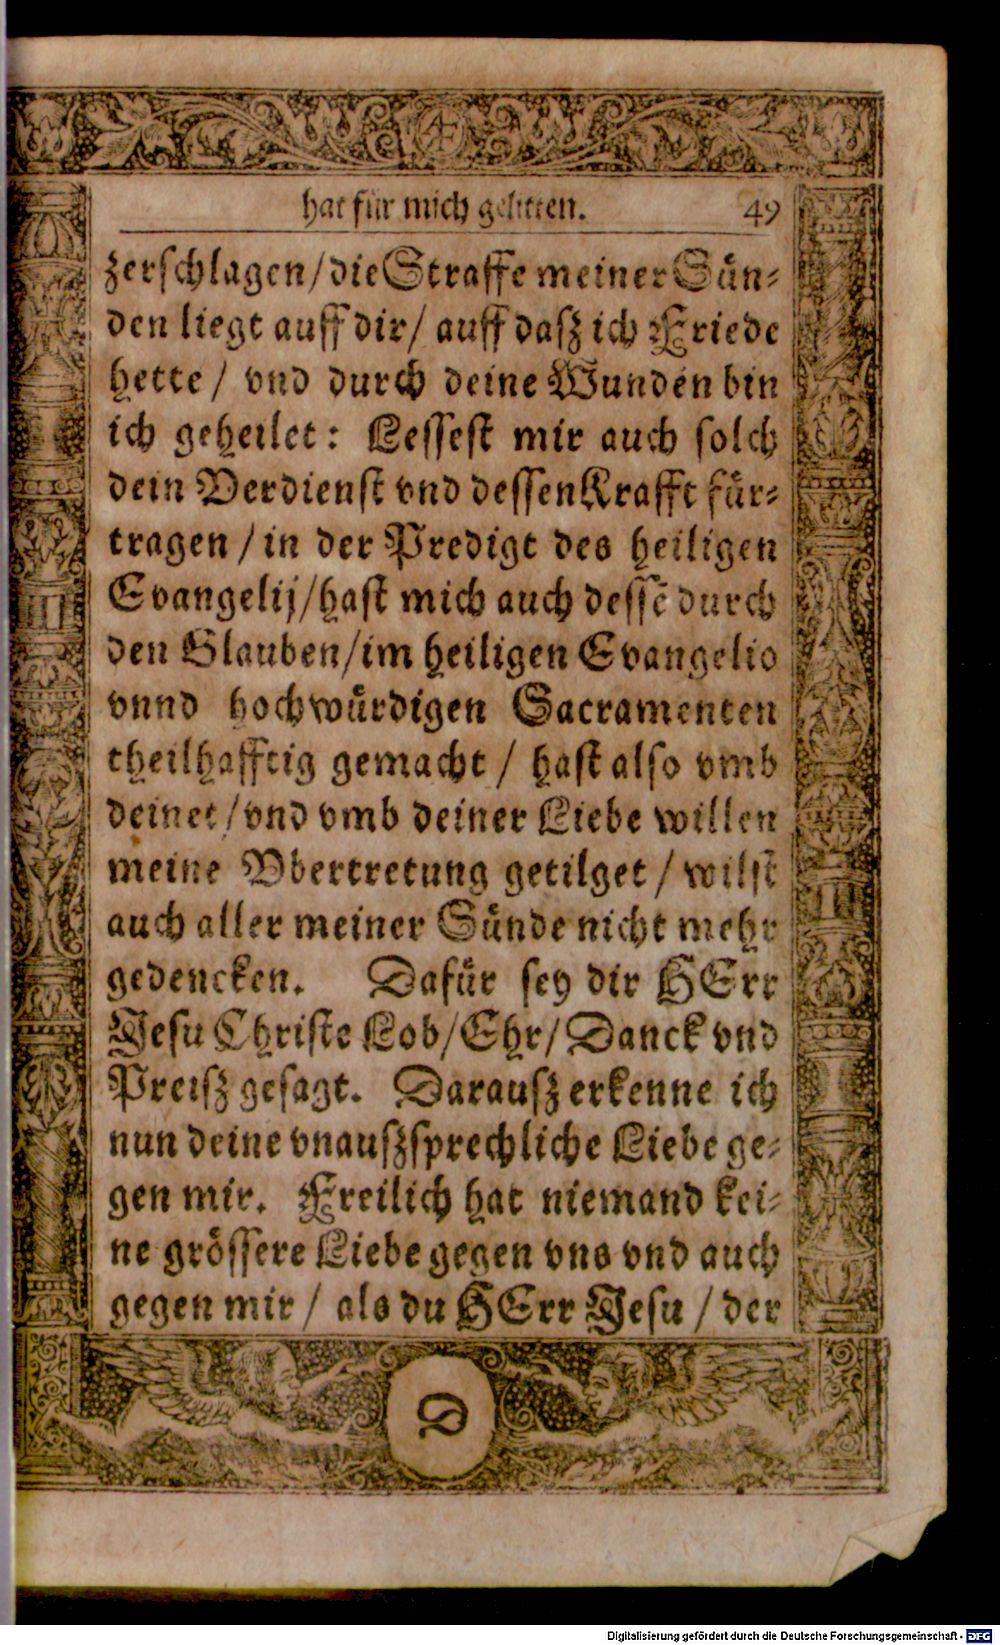 hat für mich gelitten. 49
zerschlagen/die Straffe meiner Sün⸗
den liegt auff dir/ auff dasz ich Friede
hette/ vnd durch deine Wunden bin
ich geheilet: Lessest mir auch solch
dein Verdienst vnd dessen Krafft für⸗
tragen/in der Predigt des heiligen
Evangelij/hast mich auch dessē durch
den Glauben/im heiligen Evangelio
vnnd hochwürdigen Sacramenten
theilhafftig gemacht/ hast also vmb
deinet/vnd vmb deiner Liebe willen
meine Vbertretung getilget/ wilst
auch aller meiner Sünde nicht mehr
gedencken. Dafür sey dir HErr
Jesu Christe Lob/Ehr/Danck vnd
Preisz gesagt. Darausz erkenne ich
nun deine vnauszsprechliche Liebe ge⸗
gen mir. Freilich hat niemand kei⸗
ne grössere Liebe gegen vns vnd auch
gegen mir/ als du HErr Jesu/ der
D
Digitalisierung gefördert durch die Deutsche Forschungsgemeinschaft - DFG